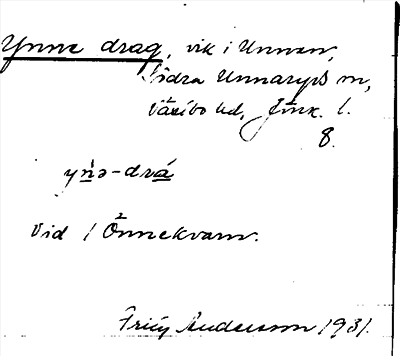 Ynne drag, vik i Unnen,
Södra Unnaryds sn,
Västbo hd, Jönk. l.
8.
yǹə-drá
Vid 1 Önnekvarn.
Frity Andersson 1931.